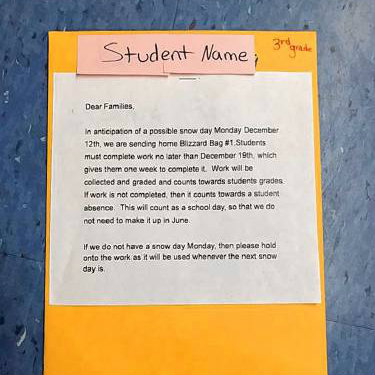 Student Name
3rd grade
Dear Families,
In anticipation of a possible snow day Monday December
12th, we are sending home Blizzard Bag #1.Students
must complete work no later than December 19th, which
gives them one week to complete it. Work will be
collected and graded and counts towards students grades.
If work is not completed, then it counts towards a student
absence. This will count as a school day, so that we do
not need to make it up in June.
If we do not have a snow day Monday, then please hold
onto the work as it will be used whenever the next snow
day is.